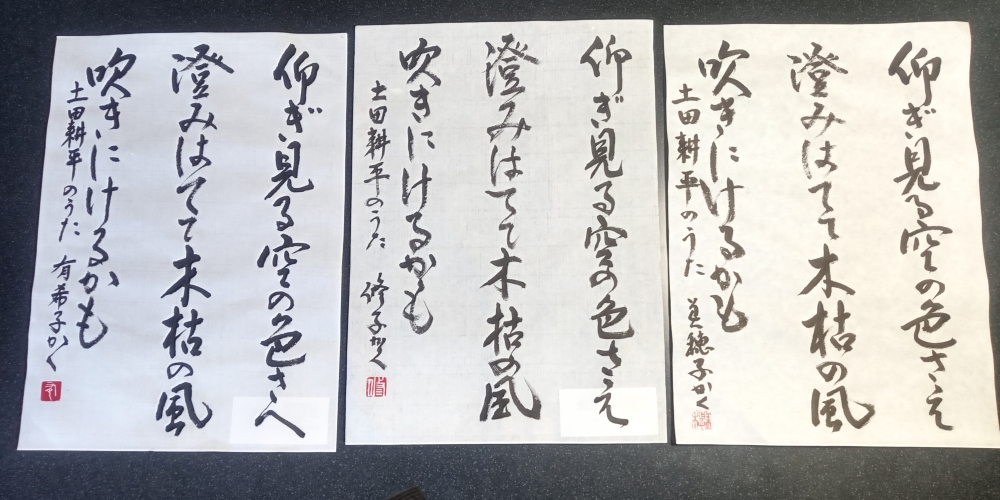 仰ぎ見る空の色さへ
澄みはてて木枯の風
吹きにけるかも
土田耕平のうた 有希子かく
仰ぎ見る空の色さえ
澄みはてて木枯の風
吹きにけるかも
土田耕平のうた 修子かく
仰ぎ見る空の色さえ
澄みはてて木枯の風
吹きにけるかも
土田耕平のうた 美穂子かく